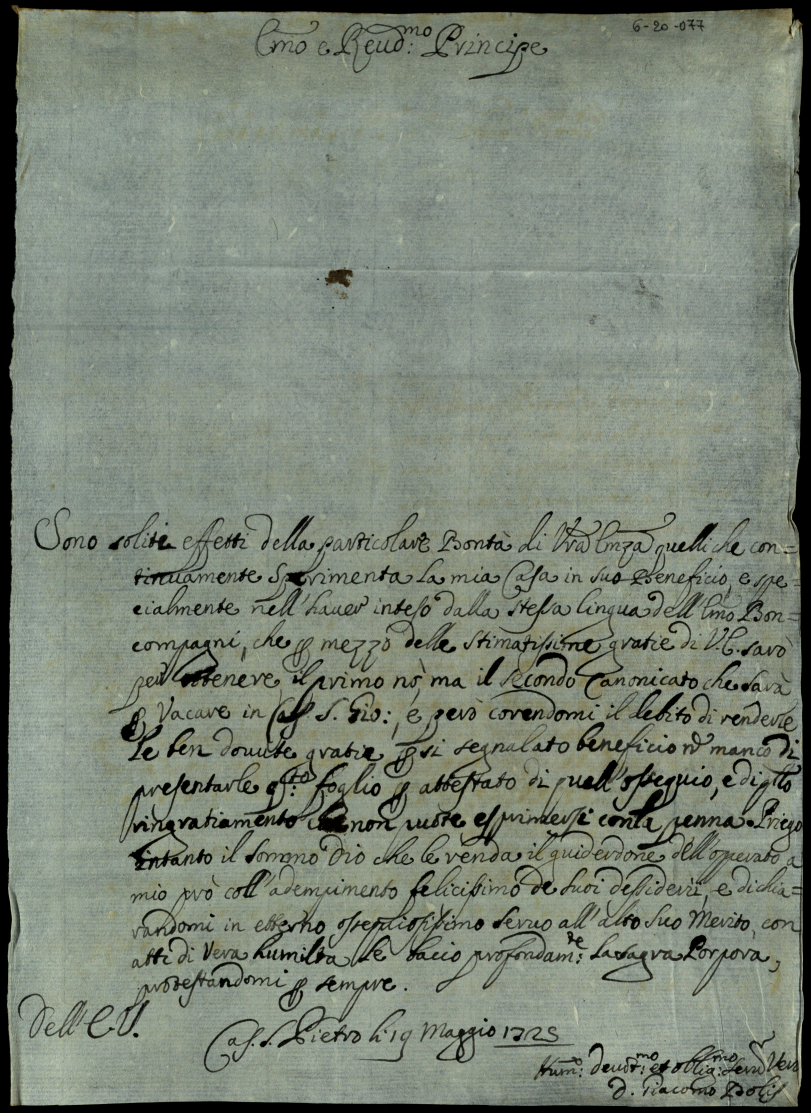 6-20-077
Emo e Reud:mo Principe
Sono soliti effetti della particolare Bontà di Vra Emza quelli che con=
tinuamente Sperimenta La mia Casa in suo Beneficio, e spe=
cialmente nell'hauer inteso dalla stessa lingua dell'Emo Bon=
compagni, che ꝑ mezzo delle stimatissime gratie di V.E. sarò
per ottenere il primo nò, ma il secondo Canonicato che sarà
ꝑ Vacare in Cast. S. Gio:, e però corendomi il debito di renderle
le ben douute gratie ꝑ si segnalato beneficio nõ manco di
presentarle q.to foglio ꝑ attestato di quell'ossequio, e di qllo
ringratiamento che non puote esprimersi con la penna. Priego
intanto il sommo Dio che le renda il guiderdone dell'operato a
mio prò coll'adempimento felicissimo de suoi desiderii, e dichia=
randomi in etterno ossequiosissimo seruo all'alto suo Merito, con
atti di Vera humiltà Le bacio profondam:te La sagra Porpora,
protestandomi ꝑ sempre.
Dell'E.V.
Cas. S. Pietro li 19 Maggio 1725
Hum:o deuot:mo et oblig:mo Seru Vero
D. Giacomo Bolis